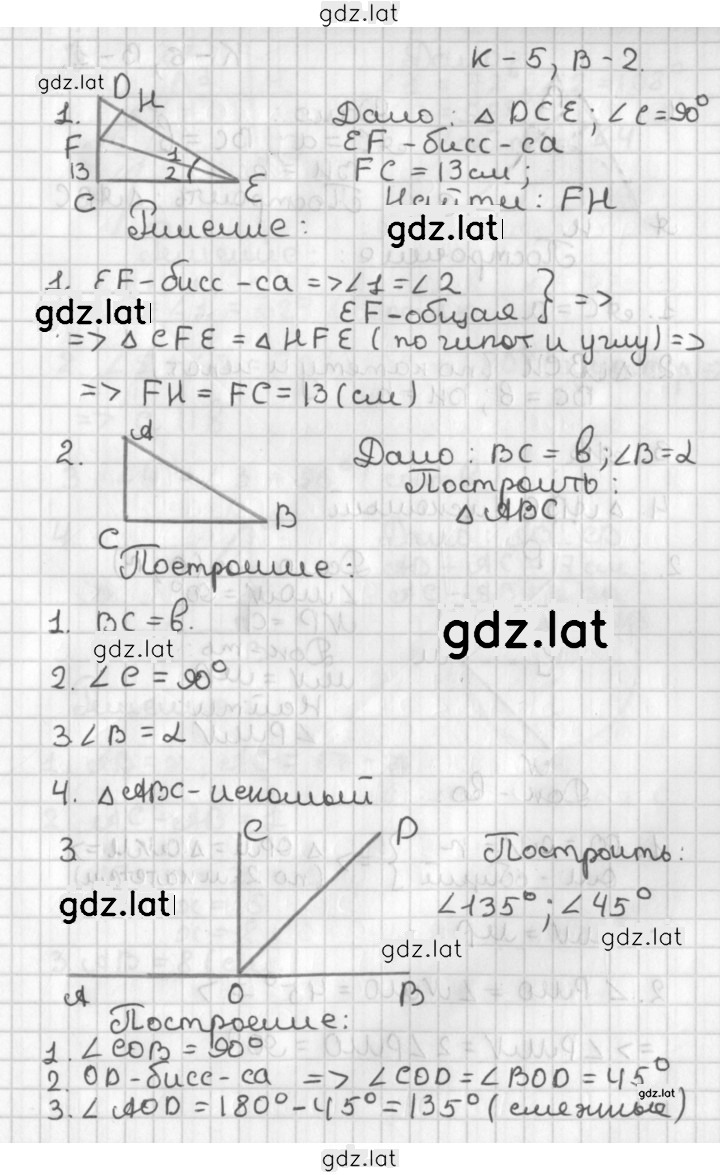 gdz.lat
К-5, В-2.
gdz.lat
1. D H F 1 2 13 C E
Дано: △DCE; ∠C=90°
EF-бисс-са
FC=13см;
Найти: FH
Решение:
gdz.lat
1. EF-бисс-са => ∠1=∠2
EF-общая } =>
gdz.lat
=> △CFE = △HFE (по гипот и углу) =>
=> FH = FC = 13 (см)
2. A B C
Дано: BC = b; ∠B=α
Построить:
△ABC
Построение:
1. BC = b.
gdz.lat
gdz.lat
2. ∠C = 90°
3. ∠B = α
4. △ABC-искомый
3. C D A O B
Построить:
∠135°; ∠45°
gdz.lat
gdz.lat
gdz.lat
Построение:
1. ∠COB = 90°
2. OD-бисс-са => ∠COD=∠BOD=45°
gdz.lat
3. ∠AOD = 180°-45°=135° (смежные)
gdz.lat